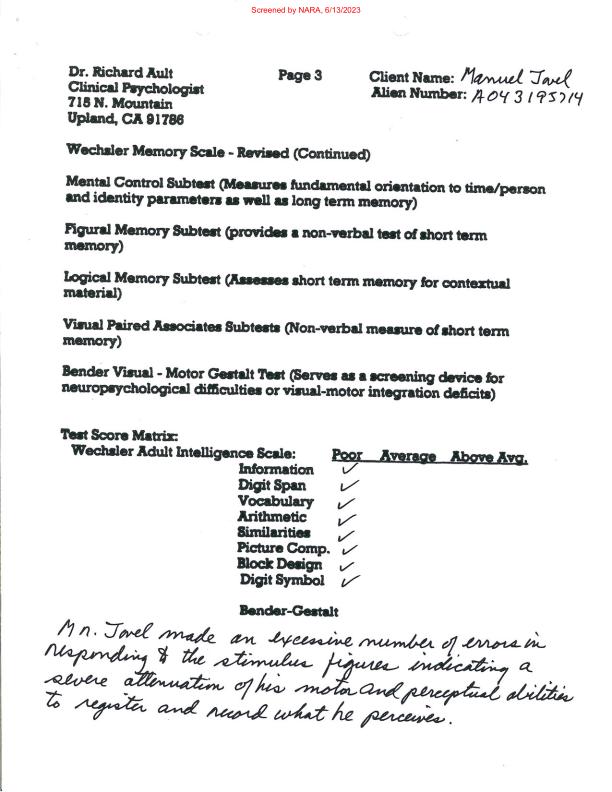 Screened by NARA, 6/13/2023
Dr. Richard Ault Page 3 Client Name: Manuel Jovel
Clinical Psychologist Alien Number: A043195714
715 N. Mountain
Upland, CA 91786
Wechsler Memory Scale - Revised (Continued)
Mental Control Subtest (Measures fundamental orientation to time/person
and identity parameters as well as long term memory)
Figural Memory Subtest (provides a non-verbal test of short term
memory)
Logical Memory Subtest (Assesses short term memory for contextual
material)
Visual Paired Associates Subtests (Non-verbal measure of short term
memory)
Bender Visual - Motor Gestalt Test (Serves as a screening device for
neuropsychological difficulties or visual-motor integration deficits)
Test Score Matrix:
Wechsler Adult Intelligence Scale: Poor Average Above Avg.
Information ✓
Digit Span ✓
Vocabulary ✓
Arithmetic ✓
Similarities ✓
Picture Comp. ✓
Block Design ✓
Digit Symbol ✓
Bender-Gestalt
Mr. Jovel made an excessive number of errors in
responding to the stimulus figures indicating a
severe attenuation of his motor and perceptual abilities
to register and record what he perceives.